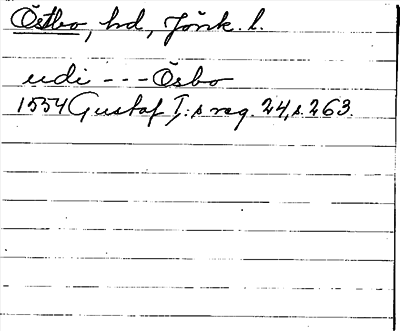 Östbo, hd, Jönk. l.
udi --- Ösbo
1554 Gustaf I:s reg. 24, s. 263.